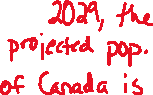 2029, the
projected pop.
of Canada is